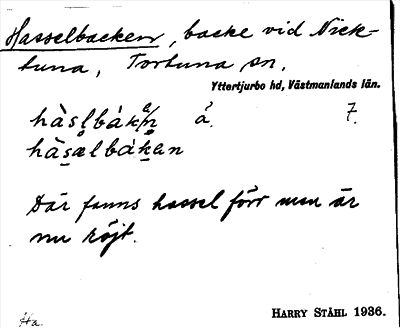 Hasselbacken, backe vid Nick-
tuna, Tortuna sn,
Yttertjurbo hd, Västmanlands län.
å. 7.
Där fanns hassel förr men är
nu röjt.
Ha.
HARRY STÅHL 1936.